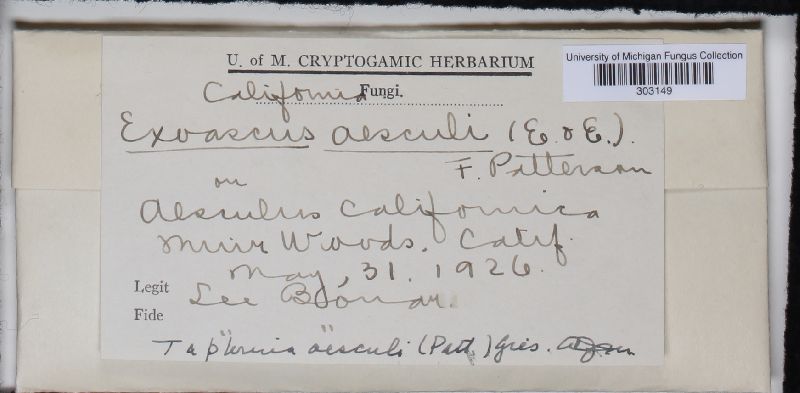 U. of M. CRYPTOGAMIC HERBARIUM
University of Michigan Fungus Collection
303149
California Fungi.
Exoascus aesculi (E. & E.).
F. Patterson
on
Aesculus californica
Muir Woods. Calif.
May, 31. 1926.
Legit Lee Bonar.
Fide
Taphrina aesculi (Patt.) Gies.